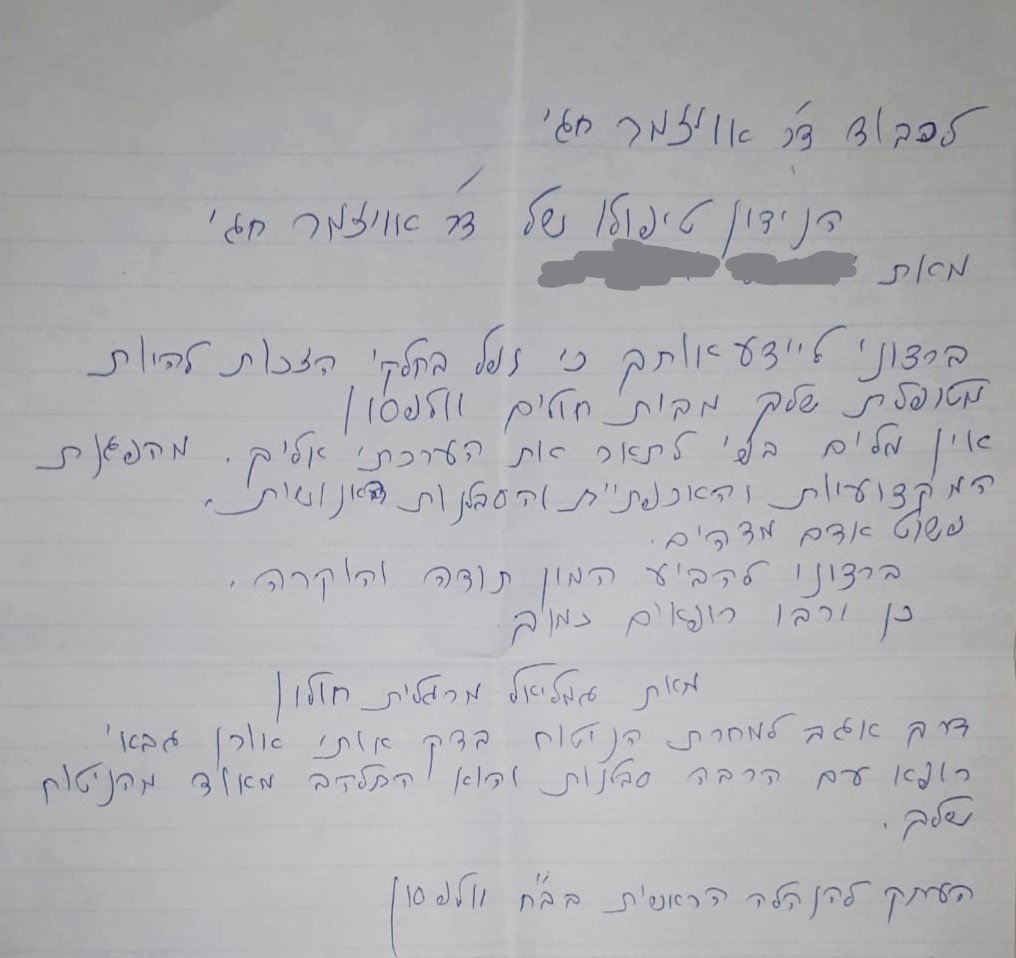 לכבוד ד"ר אוויזמר חגי
הנידון טיפולו של ד"ר אוויזמר חגי
מאת
ברצוני ליידע אותך כי נפל בחלקי הזכות להיות
מטופלת שלך מבית חולים וולפסון
אין מלים בפי לתאר את הערכתי אליך. מהפגנת
המקצועיות והאכפתיות והסבלנות האנושית.
פשוט אדם מדהים.
ברצוני להביע המון תודה והוקרה.
כן ורבו רופאים כמוך
מאת גמליאל מרגלית חולון
דרך אגב למחרת הניטוח בדק אותי אורן גבאי
רופא עם הרבה סבלנות והוא התלהב מאוד מהניטוח
שלך.
העתק להנהלה הראשית בב"ח וולפסון